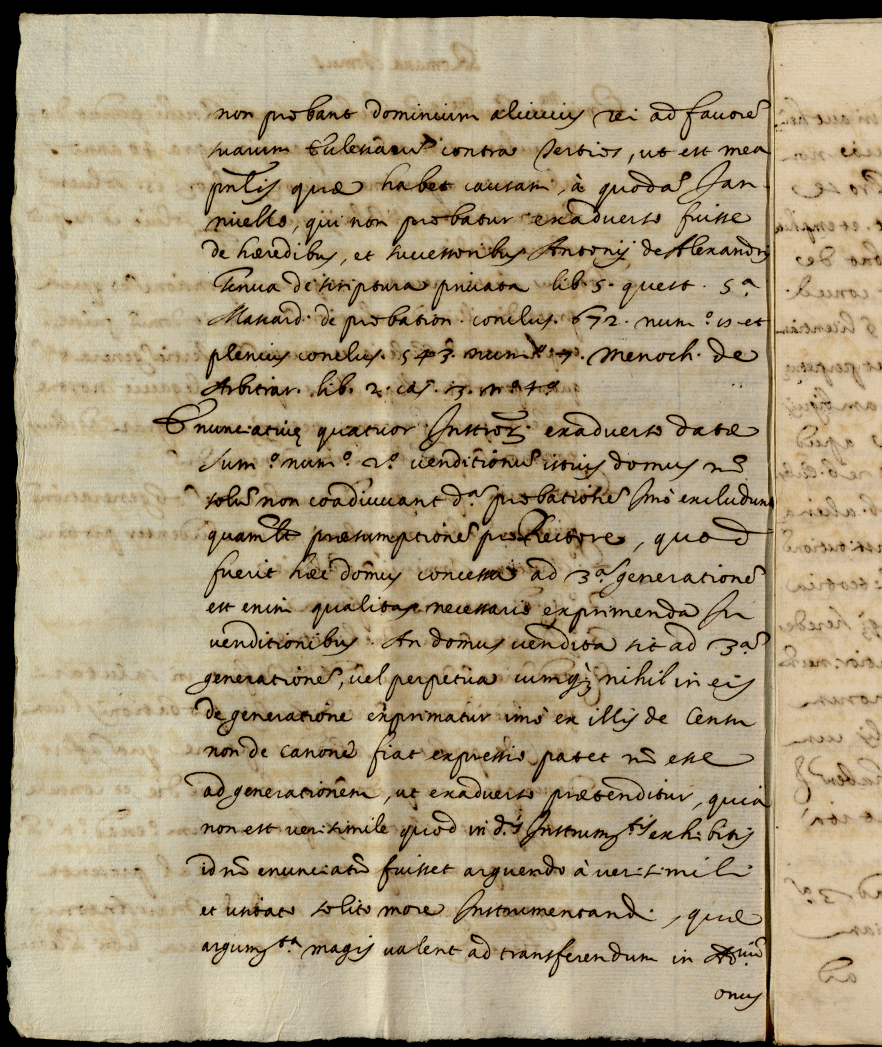 non probant dominium alicuius rei ad favorē
suarum Ecclesiarum contra tertios, ut est mea
pñlis quæ habet causam, à quodā Jan
niello, qui non probatur exadverso fuisse
de hæredibus, et successoribus Antonij de Alexandris
Genua de scriptura privata lib. 5. quest. 5.ª
Mascard. de probation. conclus. 672. num.º 15 et
plenius conclus. 543. num.º 7. Menoch. de
Arbitrar. lib. 2. cas. 13. nº 4º
Enunciativę quatuor Instrom. exadverso datæ
sum.º num.º 2.º venditionū istius domus nō
solū non coadiuvant d.ª probationē Imò excludunt
quamlt præsumptionē pro Rectore, quod
fuerit hæc domus concessa ad 3.ª generationē
est enim qualitas necessario exprimenda In
venditionibus. An domus vendita sit ad 3.ª
generationē, vel perpetua cumq; nihil in eis
de generatione exprimatur imò ex illis de Censu
non de canone fiat expressio patet nō esse
ad generationem, ut exadverso prætenditur, quia
non est verisimile quod in d.is Instrum.tis exhibitis
id nō enunciatū fuisset arguendo à verisimili
et usitato solito more Instrumentandi, quæ
argum.ta magis valent ad transferendum in
onus